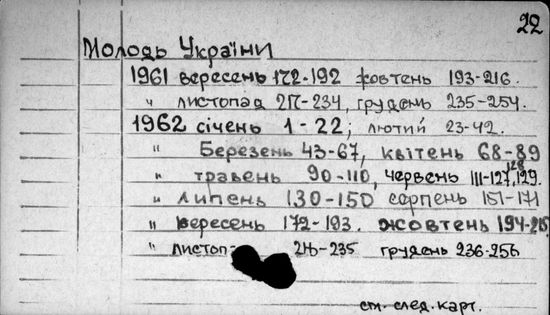 22
Молодь України
1961 вересень 172-192 жовтень 193-216.
" листопад 217-234, грудень 235-254.
1962 січень 1-22; лютий 23-42.
" Березень 43-67, квітень 68-89
" травень 90-110, червень 111-127, 128, 129.
" липень 130-150 серпень 151-171
" вересень 172-193. жовтень 194-215
" листоп 216-235 грудень 236-256
см. след. карт.